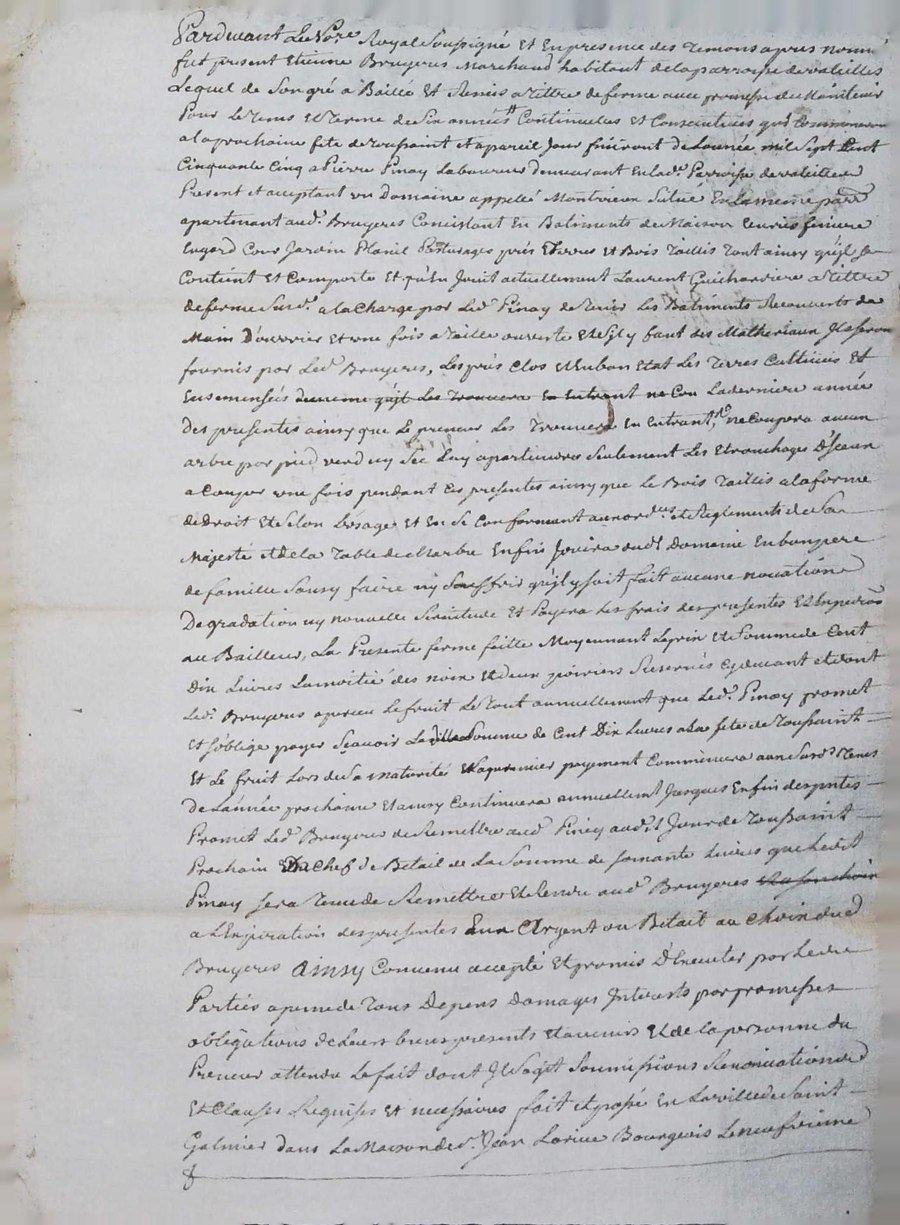 Pardevant Le No.re Royal Soussigné Et En presence des temons apres nommé
fut present Etienne Bruyeres Marchand habitant de la parroisse de valeilles
Lequel de Son gré a Baillé Et Remis a tittre de ferme avec promesse de Maintenir
Pour Le tems Et terme de Six années Continuelles Et Consecutives qui Commenceron
a la prochaine fete de toussaint et a pareil Jour finiront de L'année mil Sept Cent
Cinquante Cinq a Pierre Pinay Laboureur demeurant En lad. Parroisse de valeilles
Present et acceptant un Domaine appellé Montrieux Situé En la meme parr
apartenant aud. Bruyeres Consistant En Batiments de Maison Ecuries feniere
Eugard Cour Jardin Pasturages prés Et terres Et Bois Taillis tout ainsy qu'il Se
Contient Et Comporte Et qu'En Jouit actuellement Laurent a tittre
de ferme a la Charge par Led. Pinay de tenir Les Batiments Recouverts de
Main D'ouvrier Et une fois a taille ouverte Et S'il y faut des Matheriaux Ils Seron
fournis par Led. Bruyeres, Les prés Clos Et En bon Etat Les terres Cultivées Et
Ensemensés de meme qu'il Les trouvera En Entrant ne Cou La derniere année
Des presentes ainsy que Le preneur Les trouvera En Entrant, ne Coupera aucun
arbre par pied verd ny Sec Luy apartiendra Seulement Les Etronchages D'Iceux
a Couper une fois pendant Ces presentes ainsy que Le Bois Taillis a la forme
de Droit Et Selon L'usage Et En Se Conformant aux ord.es et Reglements de Sa
Majesté et de La Table de Marbre Enfin Jouira dud. Domaine En bon pere
de famille Sans y faire ny Souffrir qu'il y soit fait aucune novation
Degradation ny nouvelle Servitude Et Payera Les frais des presentes Et Expedition
au Bailleur, La Presente ferme faitte Moyennant Le prix et Somme de Cent
Dix Livres La moitié des noix Et deux poiriers Reservés Cy devant et dont
Led. Bruyeres aperçu Le fruit Le tout annuellement que Led. Pinay promet
Et s'oblige payer Sçavoir Lad. Somme de Cent Dix Livres a La fete de toussaint
Et Le fruit Lors de Sa maturité Et Le premier payement Commencera aux Susd. tems
de L'année prochaine Et ainsy Continuera annuellemt Jusques En fin des pntes
Promet Led. Bruyeres de Remettre aud. Pinay aud. Jour de toussaint
Prochain Chef de Betail de La Somme de soixante Livres que Ledit
Pinay sera tenu de Remettre Et Rendre aud. Bruyeres Et a son choix
a L'Expiration des presentes En Argent ou Betail au Choix dud
Bruyeres Ainsy Convenu accepté Et promis D'Executer par Lesd
Parties a peine de tous Depens Domages Interets par promesses
obligations de Leurs biens presents Et avenir Et de la personne du
Preneur attendu Le fait dont Il S'agit Soumissions Renonciations
Et Clauses Requises Et necessaires fait et passé En La ville de Saint
Galmier dans La Maison de S.r Jean Bourgeois Le neufvieme